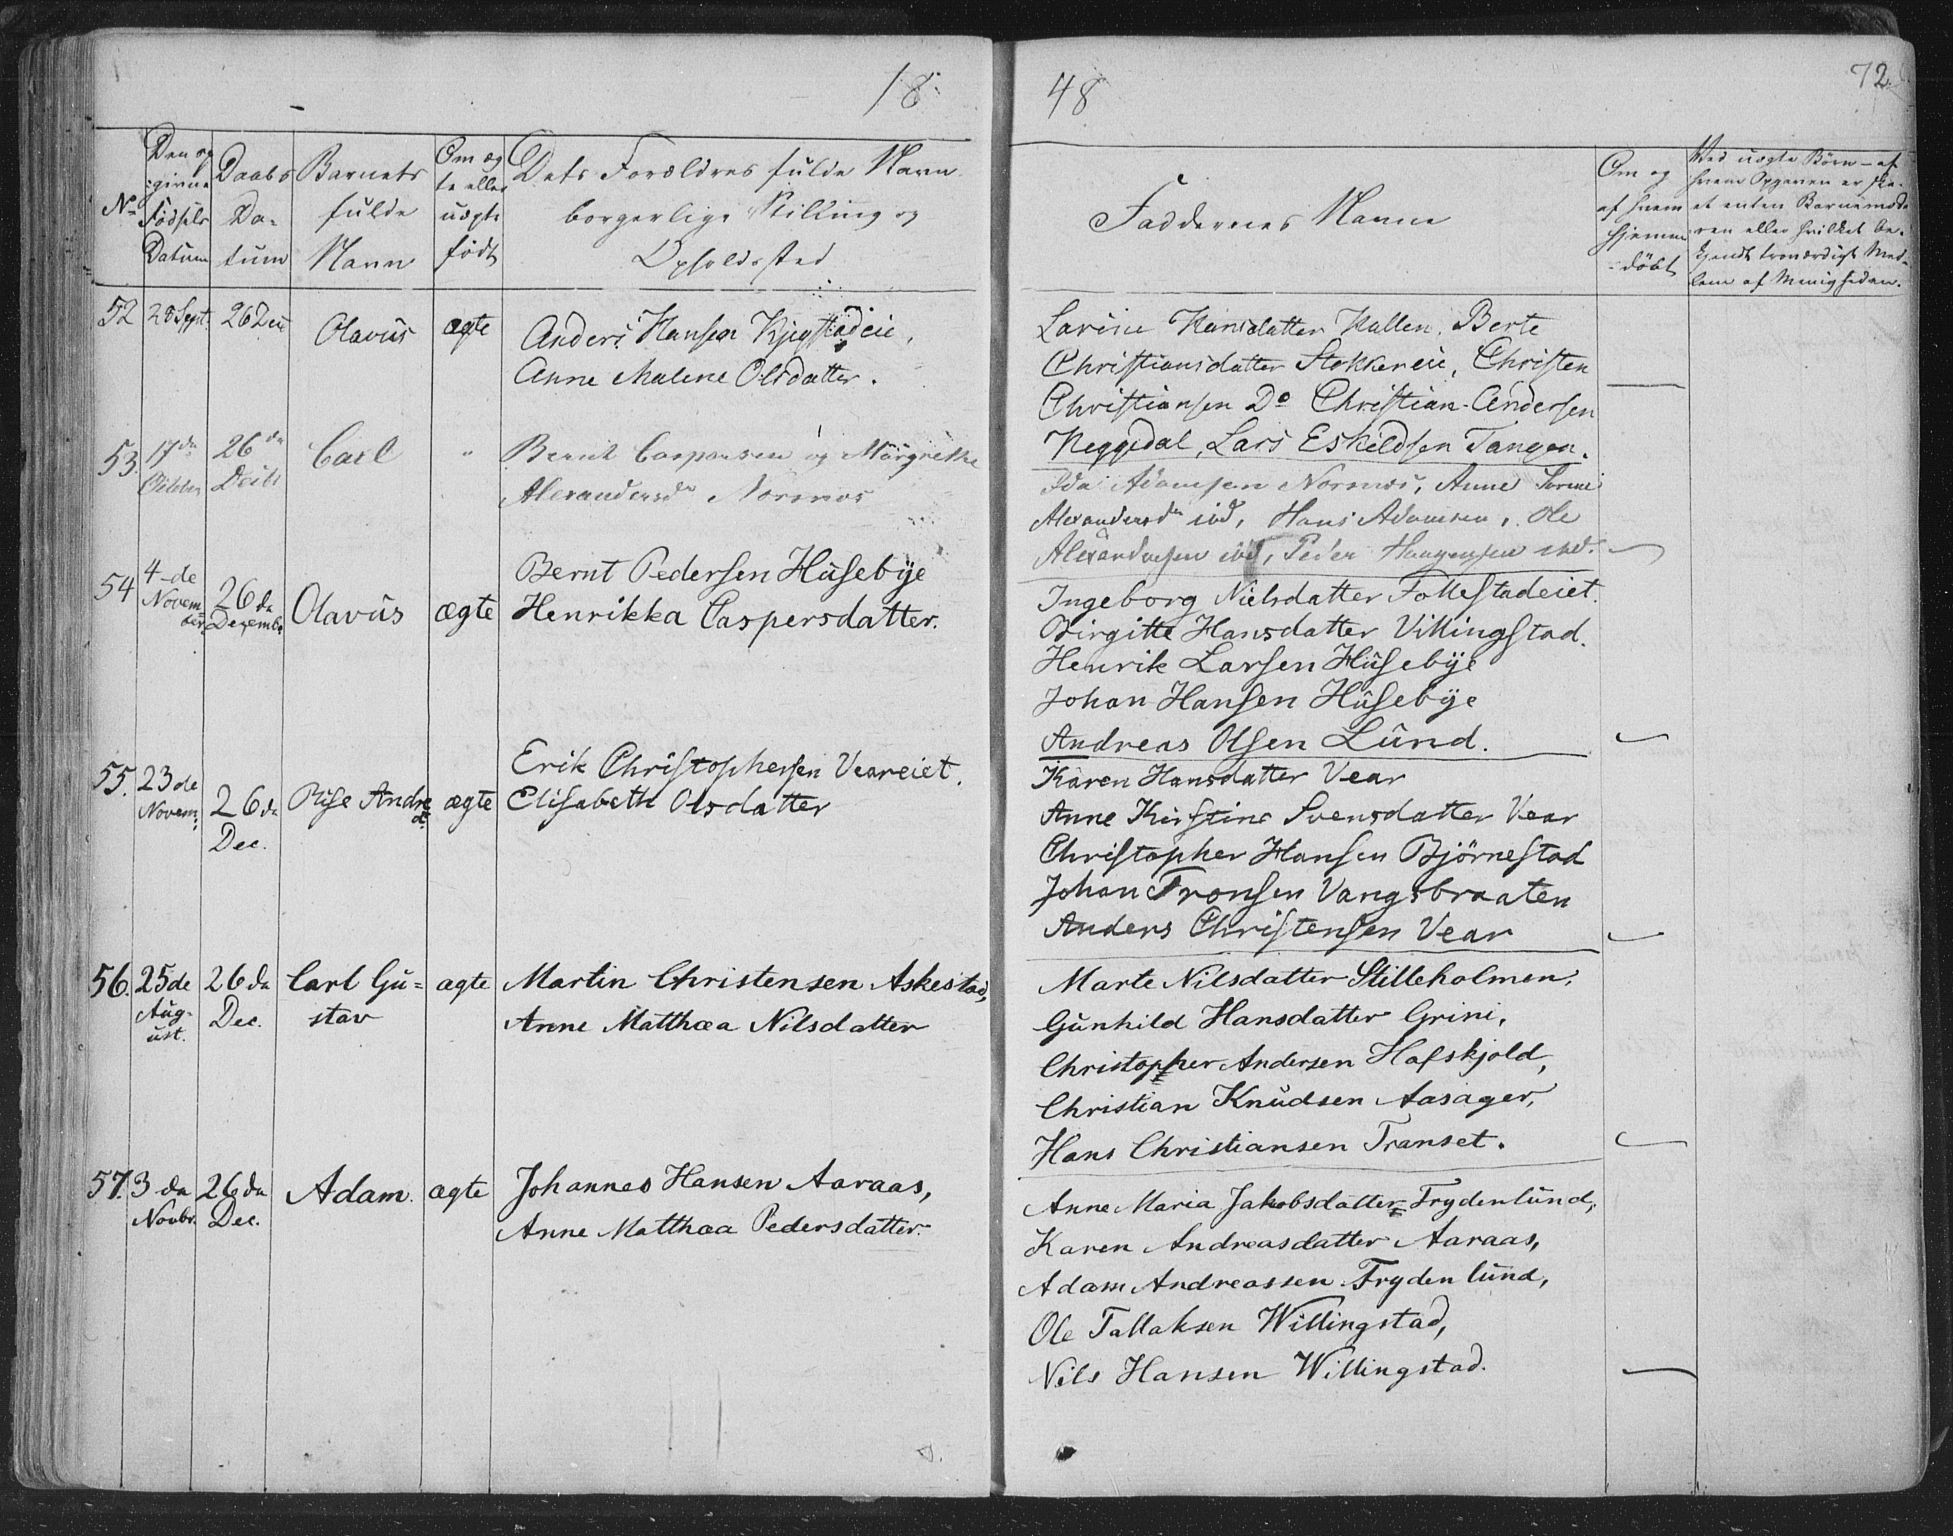 18
48
72.
No
Den op
givne
Fødsels
Datum
Daabs
Da-
tum
Barnets
fulde
Navn
Om æg
te eller
uægte
født
Dets Forældres fulde Navn
borgerlige Stilling og
Opholdssted
Faddernes Navne
Om og
af hvem
hjemme
døbt
Ved uægte Børn – af
hvem Opgaven er ske-
et enten Barnemode
ren eller hvilket be-
kjendt troværdigt Med-
lem af Menigheden.
52
28 Sept.
26 Dec
Olavus
ægte
Anders Hansen
Anne Malene Olsdatter.
Hansdatter Berte
Christiansdatter Stokkereie, Christen
Christiansen Do Christian Andersen
Heggedal, Lars Eskildsen Tangen.
53.
17de
Octbr
26de
Decb
Carl
"
Bernt Caspersen og Margrethe
Alexandersdr Næsnæs
Ida Adamsen Næsnæs, Anne Sorine
Alexandersdr ibd, Hans Adamsen, Ole
Alexandersen ibd, Peder Haagensen ibd.
54
4-de
Novem
ber
26de
Dezembr
Olavüs
ægte
Bernt Pedersen Hüsebÿe
Henrikka Caspersdatter.
Ingeborg Nielsdatter Follestadeiet.
Birgitte Hansdatter Villingstad.
Henrik Larsen Hüsebÿe
Johan Hansen Hüsebÿe
Andreas Olsen Lünd.
55.
23de
Novem:
26de
Dec.
Andre
ægte
Erik Christophersen Veareiet.
Elisabeth Olsdatter
Karen Hansdatter Vear
Anne Kirstine Svensdatter Vear
Christopher Hansen Björnestad
Johan Tronsen Vangsbraaten
Anders Christensen Vear
56.
25de
Aug-
ust.
26de
Dec.
Carl Gu=
stav
ægte
Martin Christensen Askestad,
Anne Matthæa Nilsdatter
Marte Nilsdatter Stilleholmen,
Gunhild Hansdatter Grini,
Christopher Andersen Hafskjold,
Christian Knudsen Aasager,
Hans Christiansen Transet.
57.
3-de
Novbr.
26de
Dec.
Adam.
ægte
Johannes Hansen Aaraas,
Anne Matthæa Pedersdatter.
Anne Maria Jakobsdatter Frydenlund,
Karen Andreasdatter Aaraas,
Adam Andreassen Frydenlund,
Ole Tallaksen Willingstad,
Nils Hansen Willingstad.